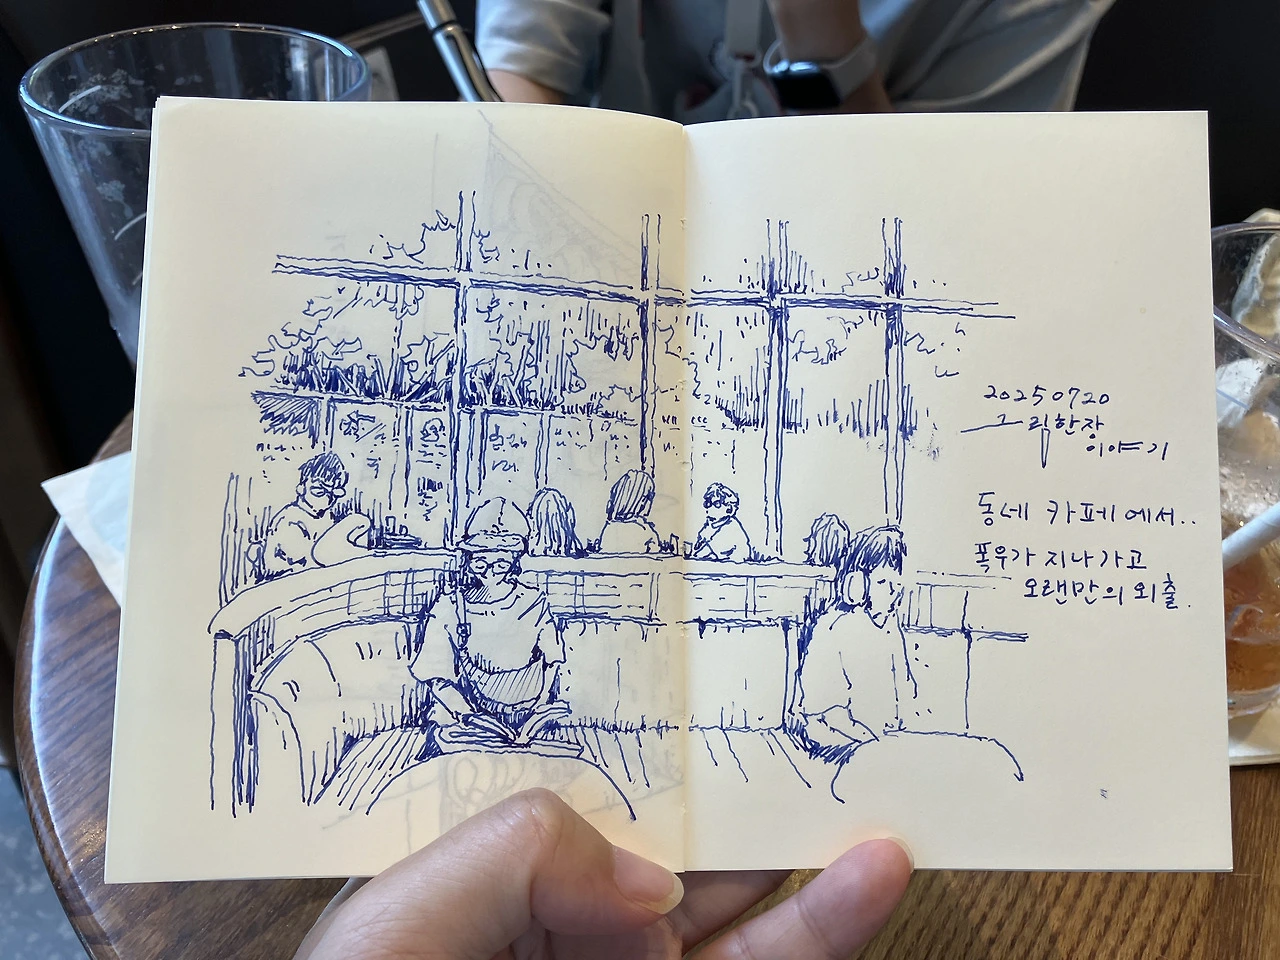 20250720
그림한장
이야기
동네 카페에서..
폭우가 지나가고
오랜만의 외출.